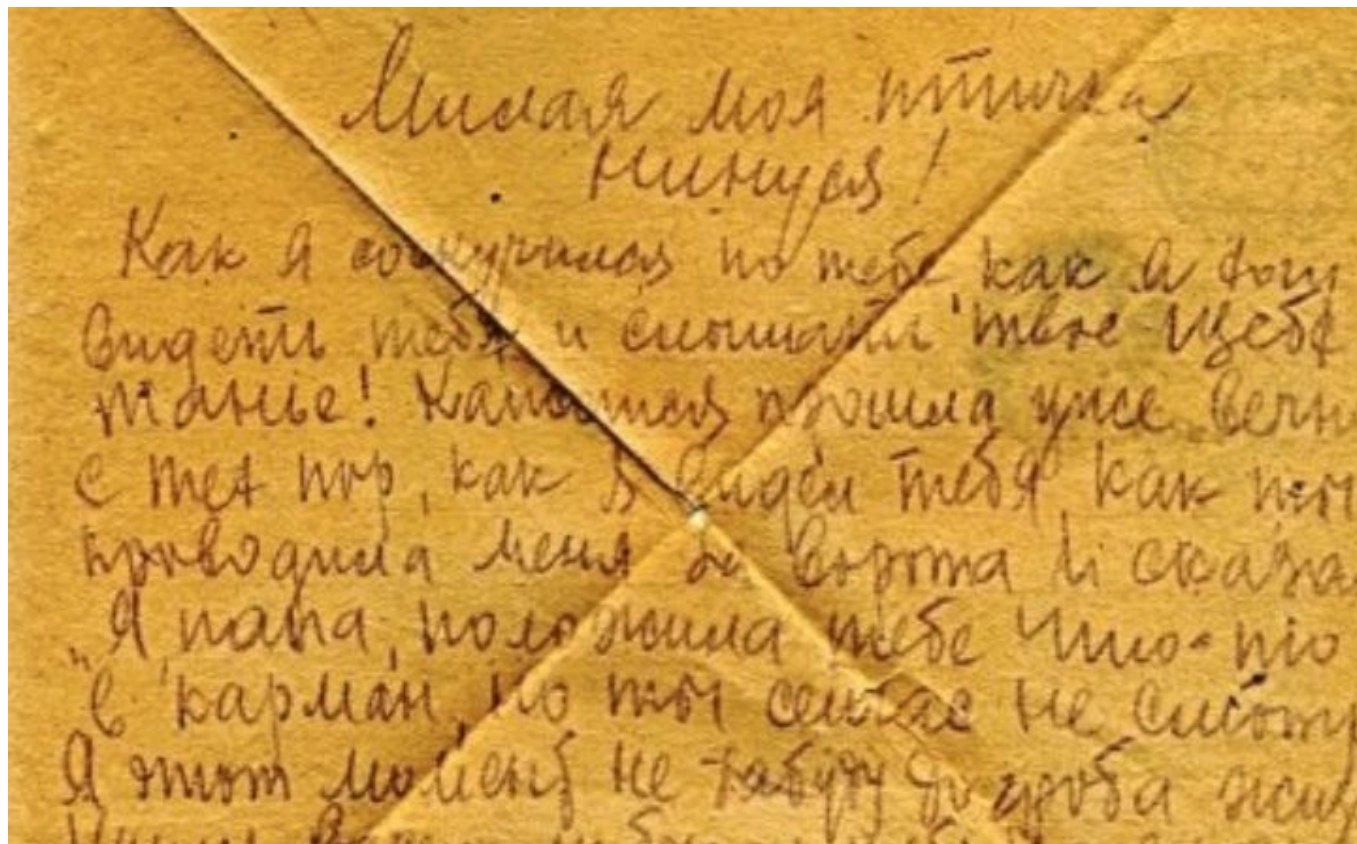 Милая моя птичка
Нинуся!
Как я соскучился по тебе как я хочу
видеть тебя и слышать твое щебе
танье! Кажется прошла уже вечн
с тех пор, как я видел тебя, как ты
проводила меня за ворота и сказа
"Я, папа, положила тебе что-то
в карман, но ты сейчас не смотр
Я этот момент не забуду до гроба